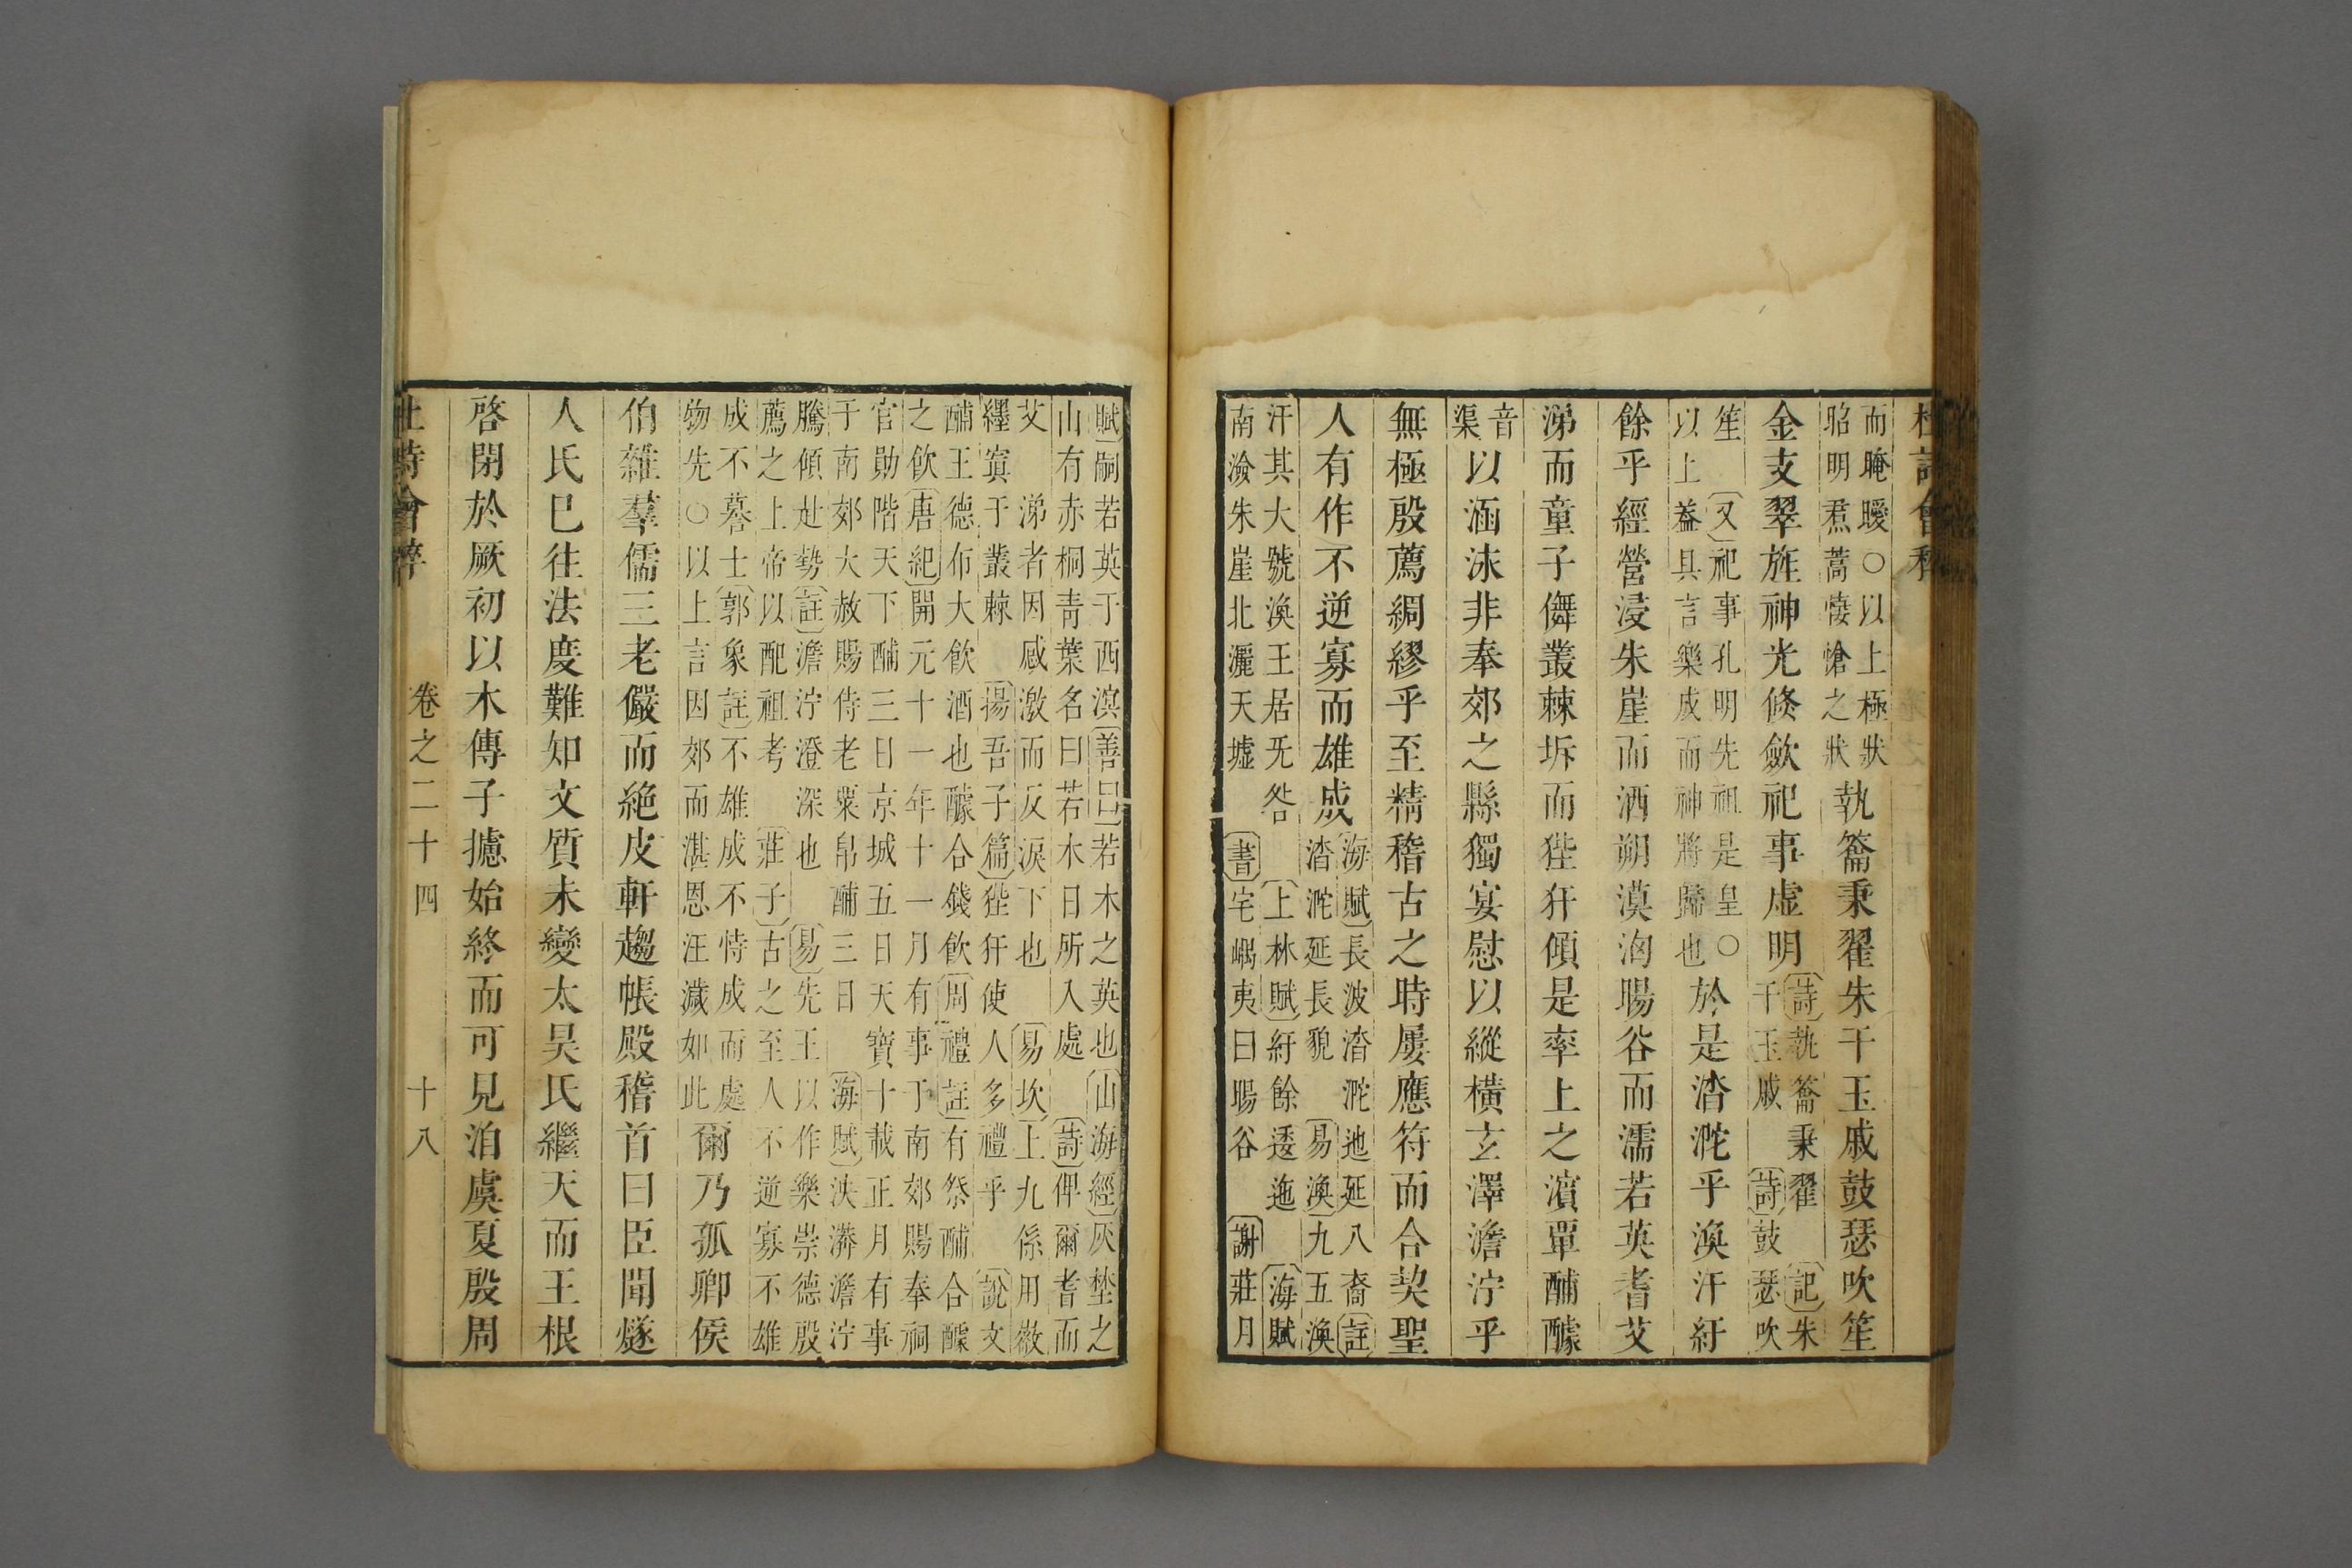 杜詩會稡
而晻曖○以上極狀
昭明焄蒿悽愴之狀
執籥秉翟朱干玉戚鼓瑟吹笙
金支翠旌神光倏歛祀事虛明
〔詩〕執籥秉翟〔記〕朱
干玉戚〔詩〕鼓瑟吹
笙〔又〕祀事孔明先祖是皇○
以上葢具言樂成而神將歸也
於是㳫沱乎渙汗紆
餘乎經營浸朱崖而洒朔漠洶暘谷而濡若英耆艾
涕而童子儛叢棘坼而狴犴傾是率上之濱單酺醵
音
渠
以涵泳非奉郊之縣獨宴慰以縱橫玄澤澹泞乎
無極殷薦綢繆乎至精稽古之時屢應符而合契聖
人有作不逆寡而雄成
〔海賦〕長波㳫沲迆延八裔〔註〕
㳫沲延長貌〔易渙〕九五渙
汗其大號渙王居旡咎〔上林賦〕紆餘逶迤〔海賦〕
南澰朱崖北灑天墟〔書〕宅嵎夷曰暘谷〔謝〕莊月
賦〕嗣若英于西溟〔善曰〕若木之英也〔山海經〕灰埜之
山有赤桐青葉名曰若木日所入處〔詩〕俾爾耆而
艾涕者因感激而反淚下也〔易坎〕上九係用徽
纆寘于叢棘〔揚吾子篇〕狴犴使人多禮乎〔說文〕
酺王德布大飲酒也醵合錢飲〔周禮註〕有祭酺合醵
之飲〔唐紀〕開元十一年十一月有事于南郊賜奉祠
官勛階天下酺三日京城五日天寶十載正月有事
于南郊大赦賜侍老粟帛酺三日〔海賦〕泱漭澹泞
騰傾赴勢〔註〕澹泞澄深也〔易〕先王以作樂崇德殷
薦之上帝以配祖考〔莊子〕古之至人不逆寡不雄
成不謩士〔郭象註〕不雄成不恃成而處
物先○以上言因郊而湛恩汪濊如此
爾乃孤卿侯
伯雜羣儒三老儼而絶皮軒趨帳殿稽首曰臣聞燧
人氏已往法度難知文質未變太昊氏繼天而王根
啓閉於厥初以木傳子攄始終而可見洎虞夏殷周
杜詩會稡　卷之二十四　十八